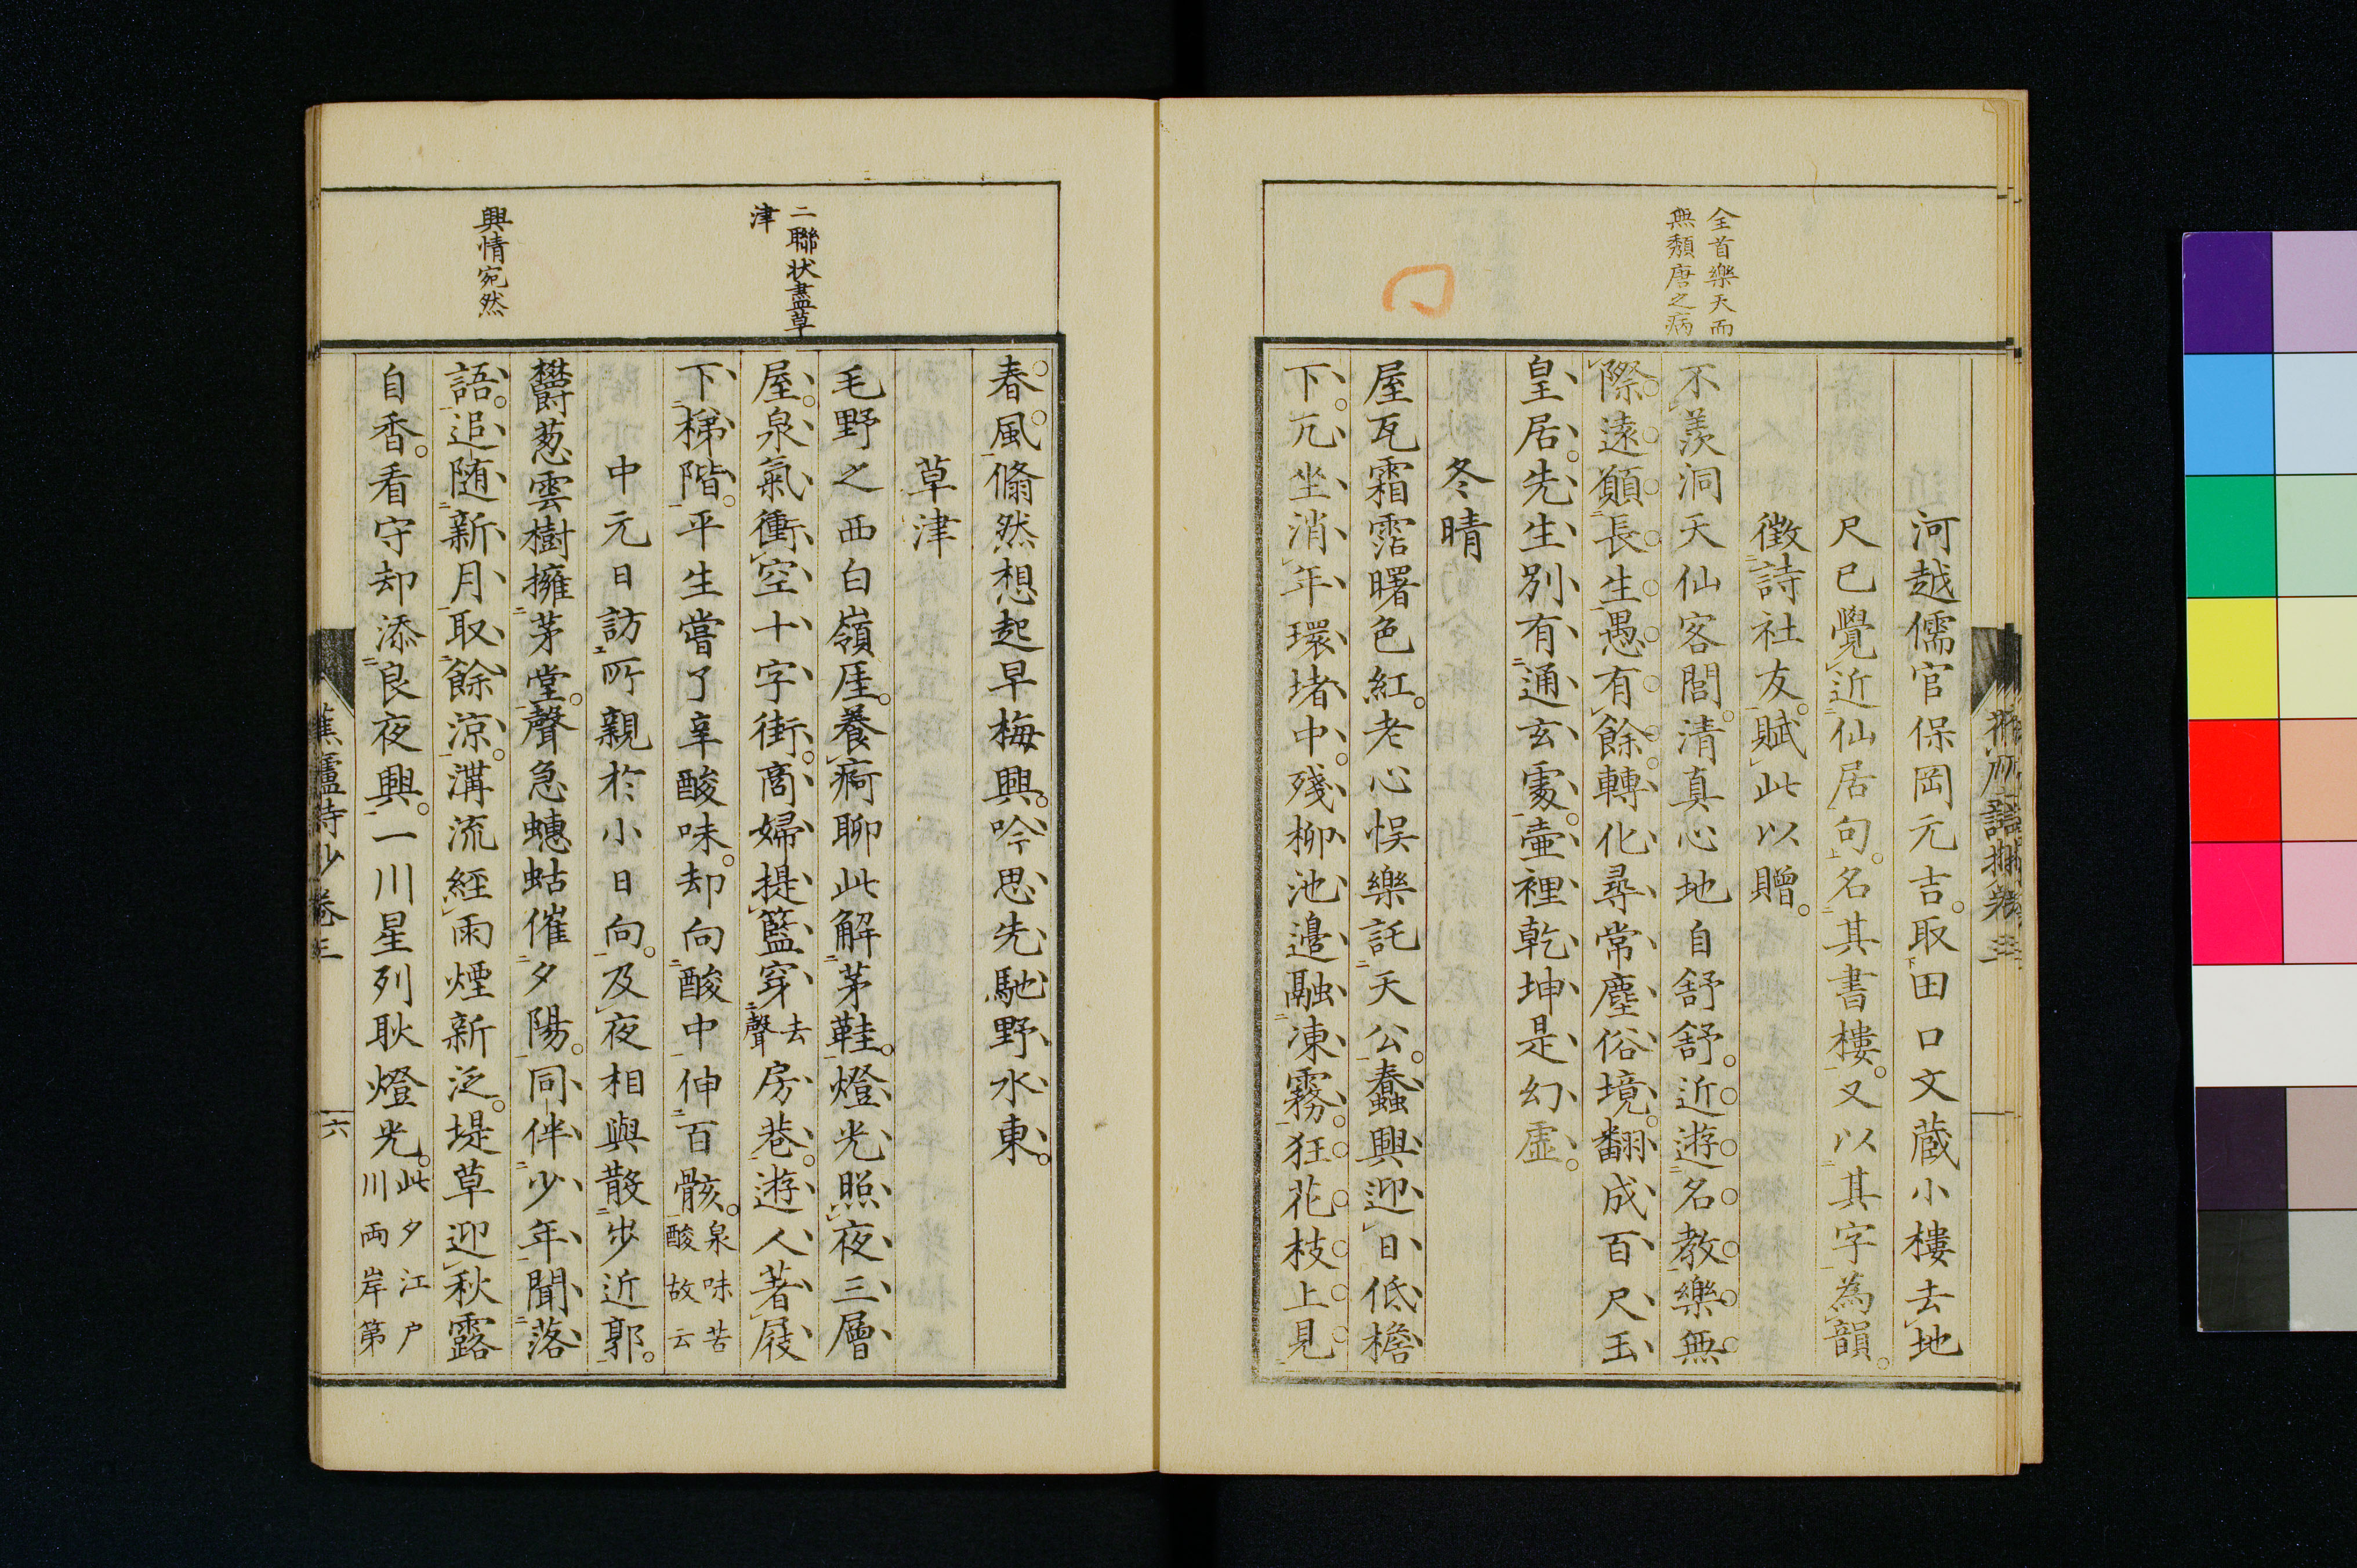 全首樂天而
無頽唐之病
河越儒官保岡元吉。取田口文蔵小樓去地
尺已覺近仙居句。名其書樓。又以其字為韻。
徴詩社友。賦此以贈。
不羨洞天仙客閭。清真心地自舒舒。近遊名教樂無
際。遠願長生愚有餘。轉化尋常塵俗境。翻成百尺玉
皇居。先生別有通玄處。壷裡乾坤是幻虚。
冬晴
屋瓦霜霑曙色紅。老心悞樂託天公。蠢興迎日低檐
下。兀坐消年環堵中。殘柳池邉融凍霧。狂花枝上見
二聯状盡草
津
興情宛然
春風。翛然想起早梅興。吟思先馳野水東。
草津
毛野之西白嶺厓。養痾聊此解茅鞋。燈光照夜三層
屋。泉氣衝空十字街。商婦提籃穿去聲房巷。遊人著屐
下梯階。平生嘗了辛酸味。却向酸中伸百骸。泉味苦酸故云
中元日訪所親於小日向。及夜相與散歩近郭。
欝葱雲樹擁茅堂。聲急蟪蛄催夕陽。同伴少年聞落
語。追随新月取餘涼。溝流経雨煙新泛。堤草迎秋露
自香。看守却添良夜興。一川星列耿燈光。此夕江戸川両岸第
蕉廬詩鈔 巻三
六